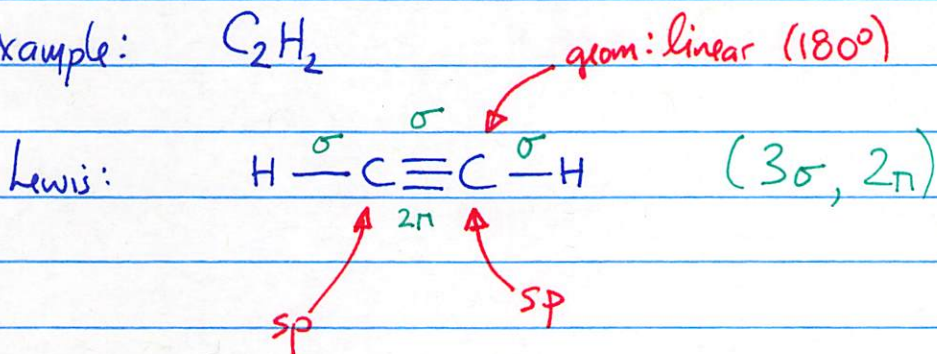 xample: C₂H₂ geom: linear (180°)
σ
Lewis: H — σ C ≡ C — σ H (3σ, 2π)
2π
sp sp